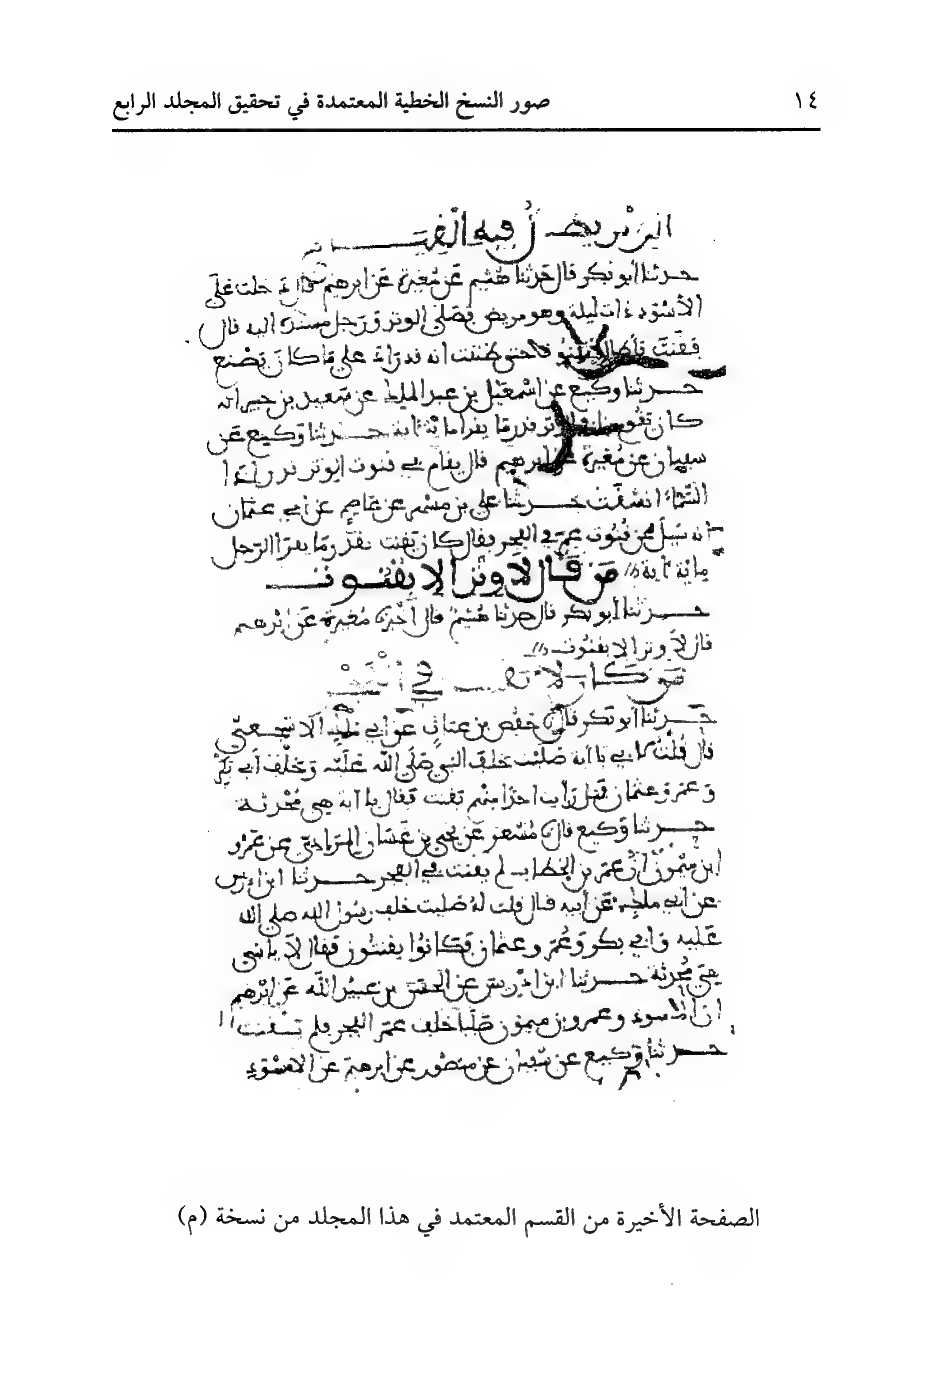 ١٤ صور النسخ الخطية المعتمدة في تحقيق المجلد الرابع
حدثنا أبو بكر قال حدثنا هشيم عن مغيرة عن ابرهيم قال دخلت على
الأسود ذات ليلة وهو مريض فصلى الوتر ورجل مسنده اليه قال
فقنت حتى ظننت انه قد زاد على ما كان يصنع
حدثنا وكيع عن اسمعيل بن عبد الملك عن سعيد بن جبير انه
كان يقوم في الوتر قدر ما يقرا ماية اية حدثنا وكيع عن
سفيان عن مغيرة عن ابرهيم قال يقام في قنوت الوتر قدر اذا
السماء انشقت حدثنا علي بن مسهر عن عاصم عن ابي عثمان
انه سيل عن قنوت عمر في الفجر فقال كان يقنت بقدر ما يقرا الرجل
ماية اية
من قال لا وتر الا بقنوت
حدثنا أبو بكر قال حدثنا هشيم قال أخبرنا مغيرة عن ابرهيم
قال لا وتر الا بقنوت
من كان لا يقنت في الفجر
حدثنا أبو بكر قال حفص بن غياث عن أبي ملك الاشجعي
قال قلت لأبي يا ابة صليت خلف النبي صلى الله عليه وخلف أبي بكر
وعمر وعثمان فهل رايت احدا منهم يقنت فقال يا ابة هي محدثة
حدثنا وكيع قال مسعر عن يحيى بن غسان المرادي عن عمرو
ابن ميمون ان عمر بن الخطاب لم يقنت في الفجر حدثنا ابن ادريس
عن ابي ملك عن أبيه قال قلت له صليت خلف رسول الله صلى الله
عليه وأبي بكر وعمر وعثمان فكانوا يقنتون فقال لا يا بني
هي محدثة حدثنا ابن ادريس عن الحسن بن عبيد الله عن ابرهيم
ان الاسود وعمرو بن ميمون صليا خلف عمر الفجر فلم يقنت
حدثنا وكيع عن سفيان عن منصور عن ابرهيم عن الاسود
الصفحة الأخيرة من القسم المعتمد في هذا المجلد من نسخة (م)